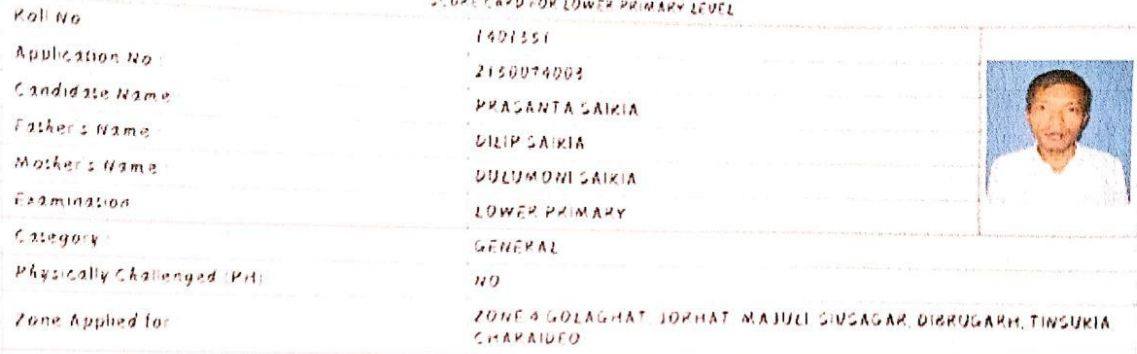 SCORE CARD FOR LOWER PRIMARY LEVEL
Roll No 1401351
Application No : 2130074003
Candidate Name : PRASANTA SAIKIA
Father's Name : DILIP SAIKIA
Mother's Name : DULUMONI SAIKIA
Examination LOWER PRIMARY
Category : GENERAL
Physically Challenged (PH) NO
Zone Applied for ZONE 4 GOLAGHAT, JORHAT, MAJULI, SIVSAGAR, DIBRUGARH, TINSUKIA
CHARAIDEO